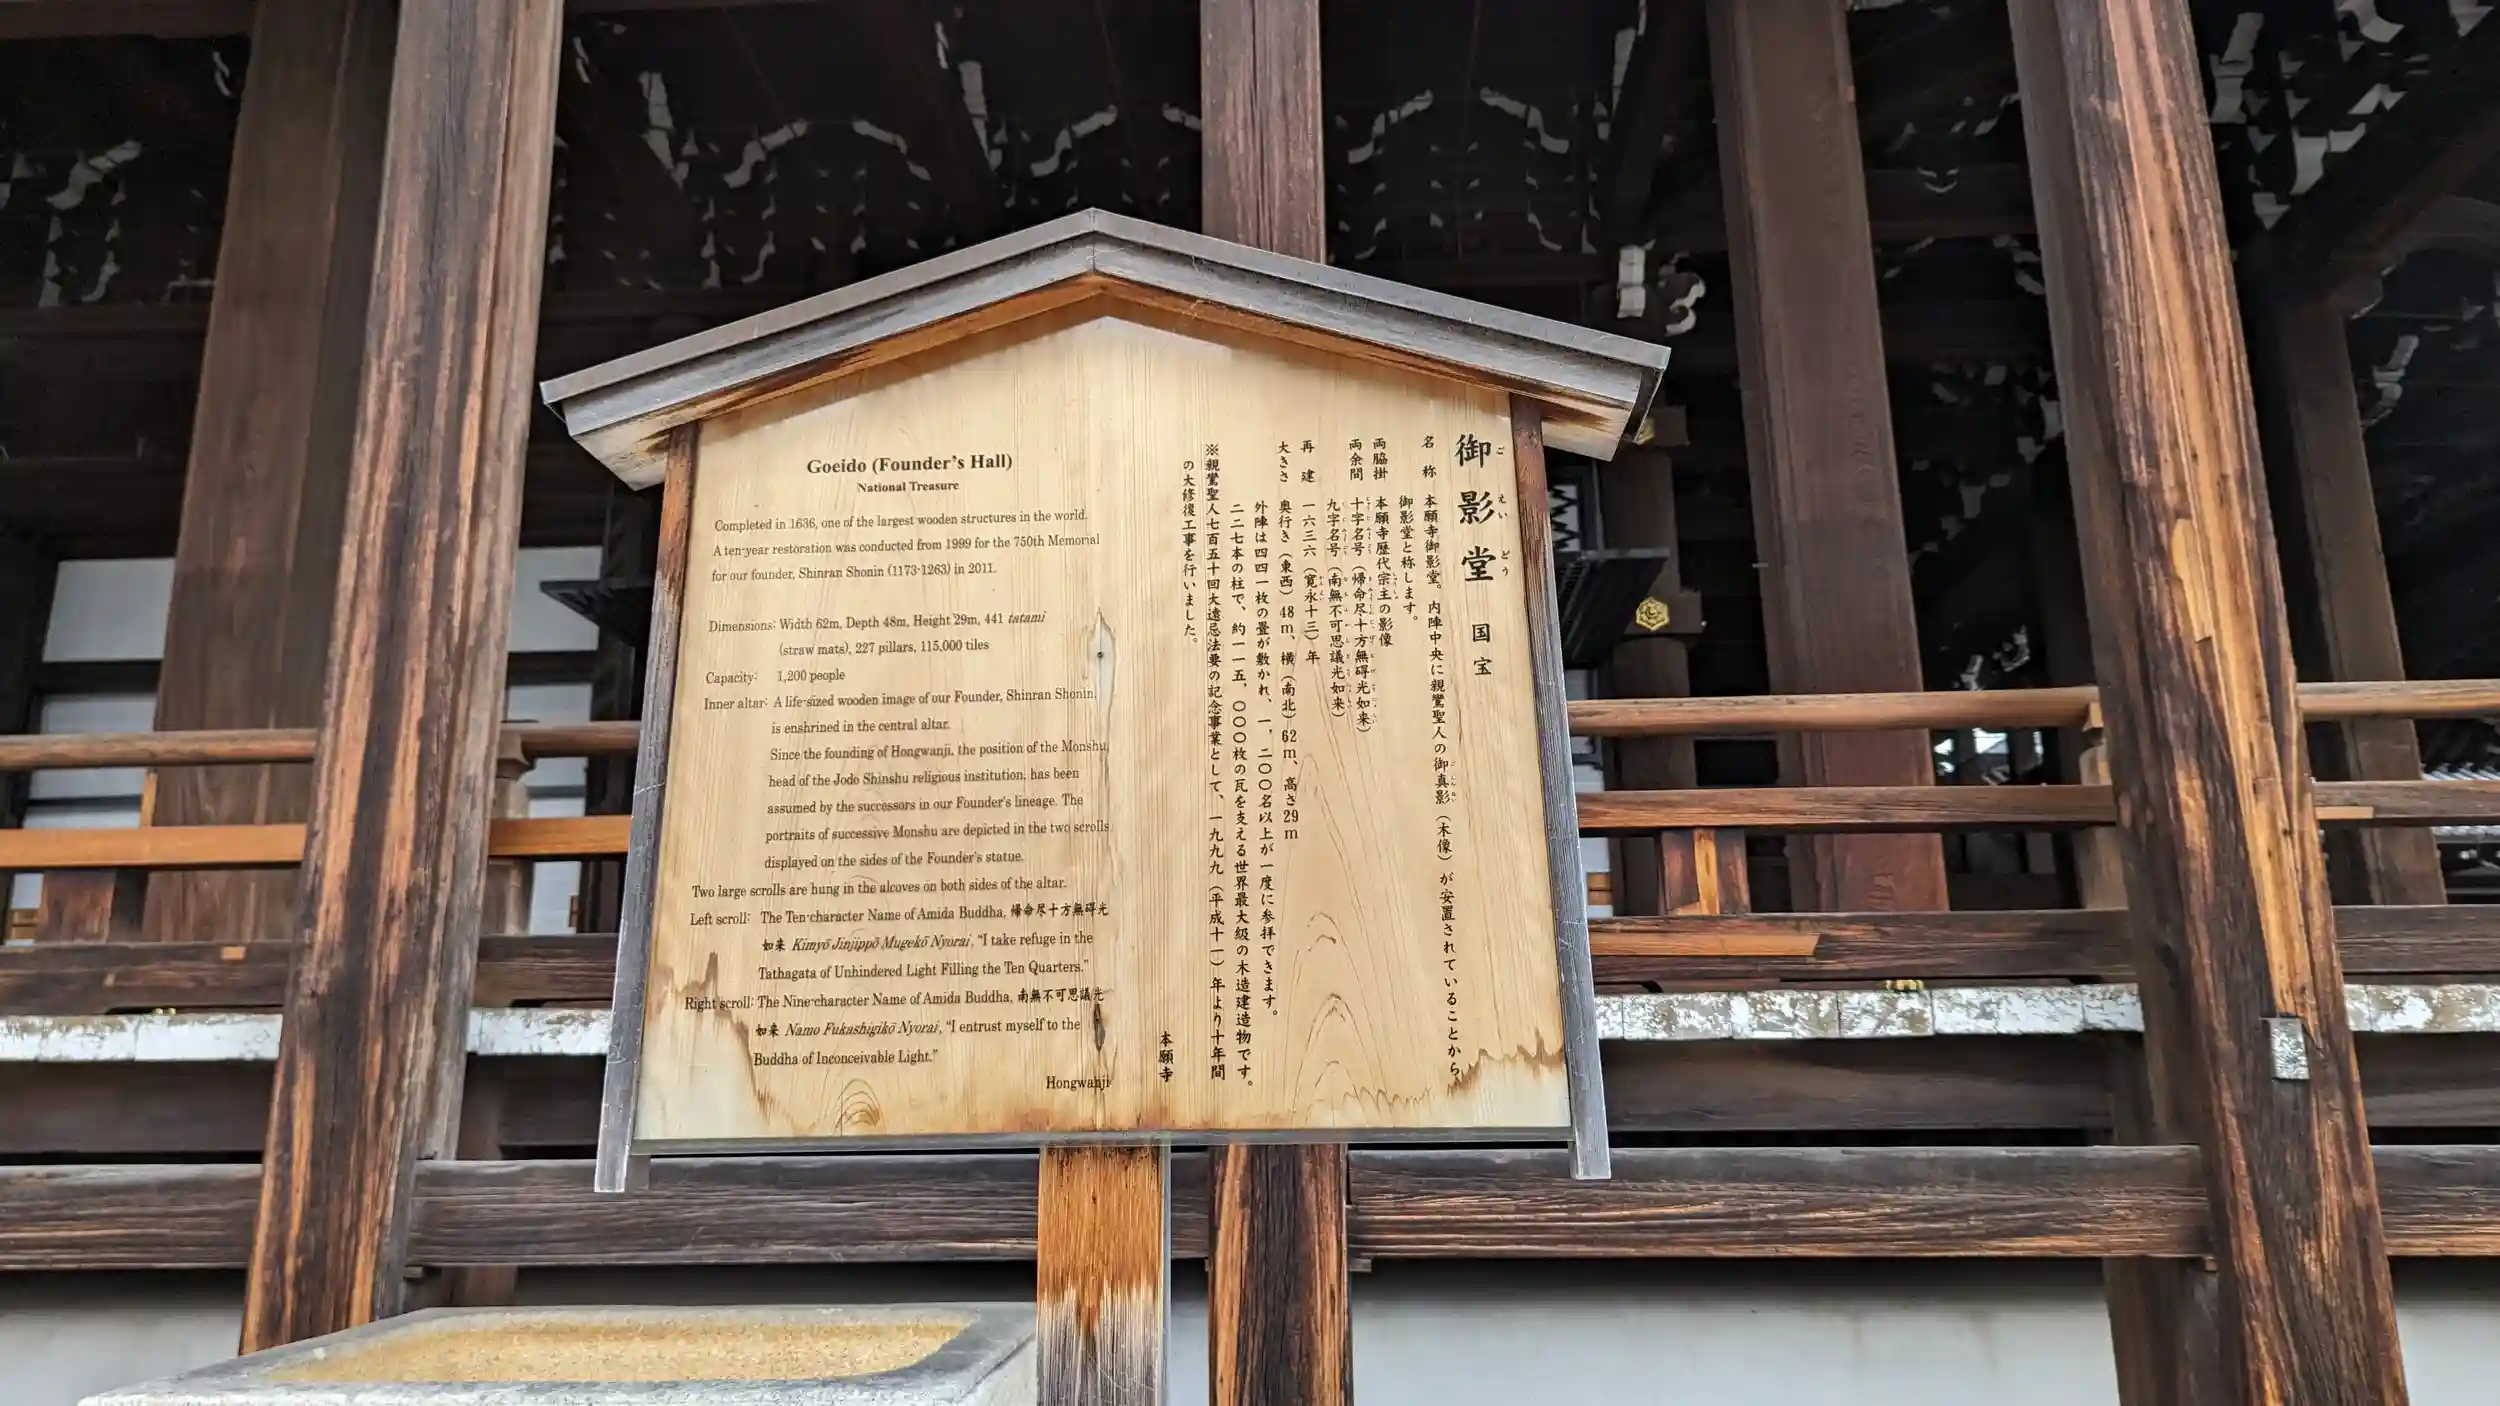 Goeido (Founder's Hall)
National Treasure
Completed in 1636, one of the largest wooden structures in the world.
A ten-year restoration was conducted from 1999 for the 750th Memorial
for our founder, Shinran Shonin (1173-1263) in 2011.
Dimensions: Width 62m, Depth 48m, Height 29m, 441 tatami
(straw mats), 227 pillars, 115,000 tiles
Capacity: 1,200 people
Inner altar: A life-sized wooden image of our Founder, Shinran Shonin,
is enshrined in the central altar.
Since the founding of Hongwanji, the position of the Monshu,
head of the Jodo Shinshu religious institution, has been
assumed by the successors in our Founder's lineage. The
portraits of successive Monshu are depicted in the two scrolls
displayed on the sides of the Founder's statue.
Two large scrolls are hung in the alcoves on both sides of the altar.
Left scroll: The Ten-character Name of Amida Buddha, 帰命尽十方無碍光
如来 Kimyō Jinjippō Mugekō Nyorai, "I take refuge in the
Tathagata of Unhindered Light Filling the Ten Quarters."
Right scroll: The Nine-character Name of Amida Buddha, 南無不可思議光
如来 Namo Fukashigikō Nyorai, "I entrust myself to the
Buddha of Inconceivable Light."
Hongwanji
御影堂 国宝
ごえいどう
名称 本願寺御影堂。内陣中央に親鸞聖人の御真影(木像)が安置されていることから
御影堂と称します。
両脇掛 本願寺歴代宗主の影像
両余間 十字名号(帰命尽十方無碍光如来)
九字名号(南無不可思議光如来)
再建 一六三六(寛永十三)年
大きさ 奥行き(東西)48m、横(南北)62m、高さ29m
外陣は四四一枚の畳が敷かれ、一、二〇〇名以上が一度に参拝できます。
二二七本の柱で、約一一五、〇〇〇枚の瓦を支える世界最大級の木造建造物です。
※親鸞聖人七百五十回大遠忌法要の記念事業として、一九九九(平成十一)年より十年間
の大修復工事を行いました。
本願寺